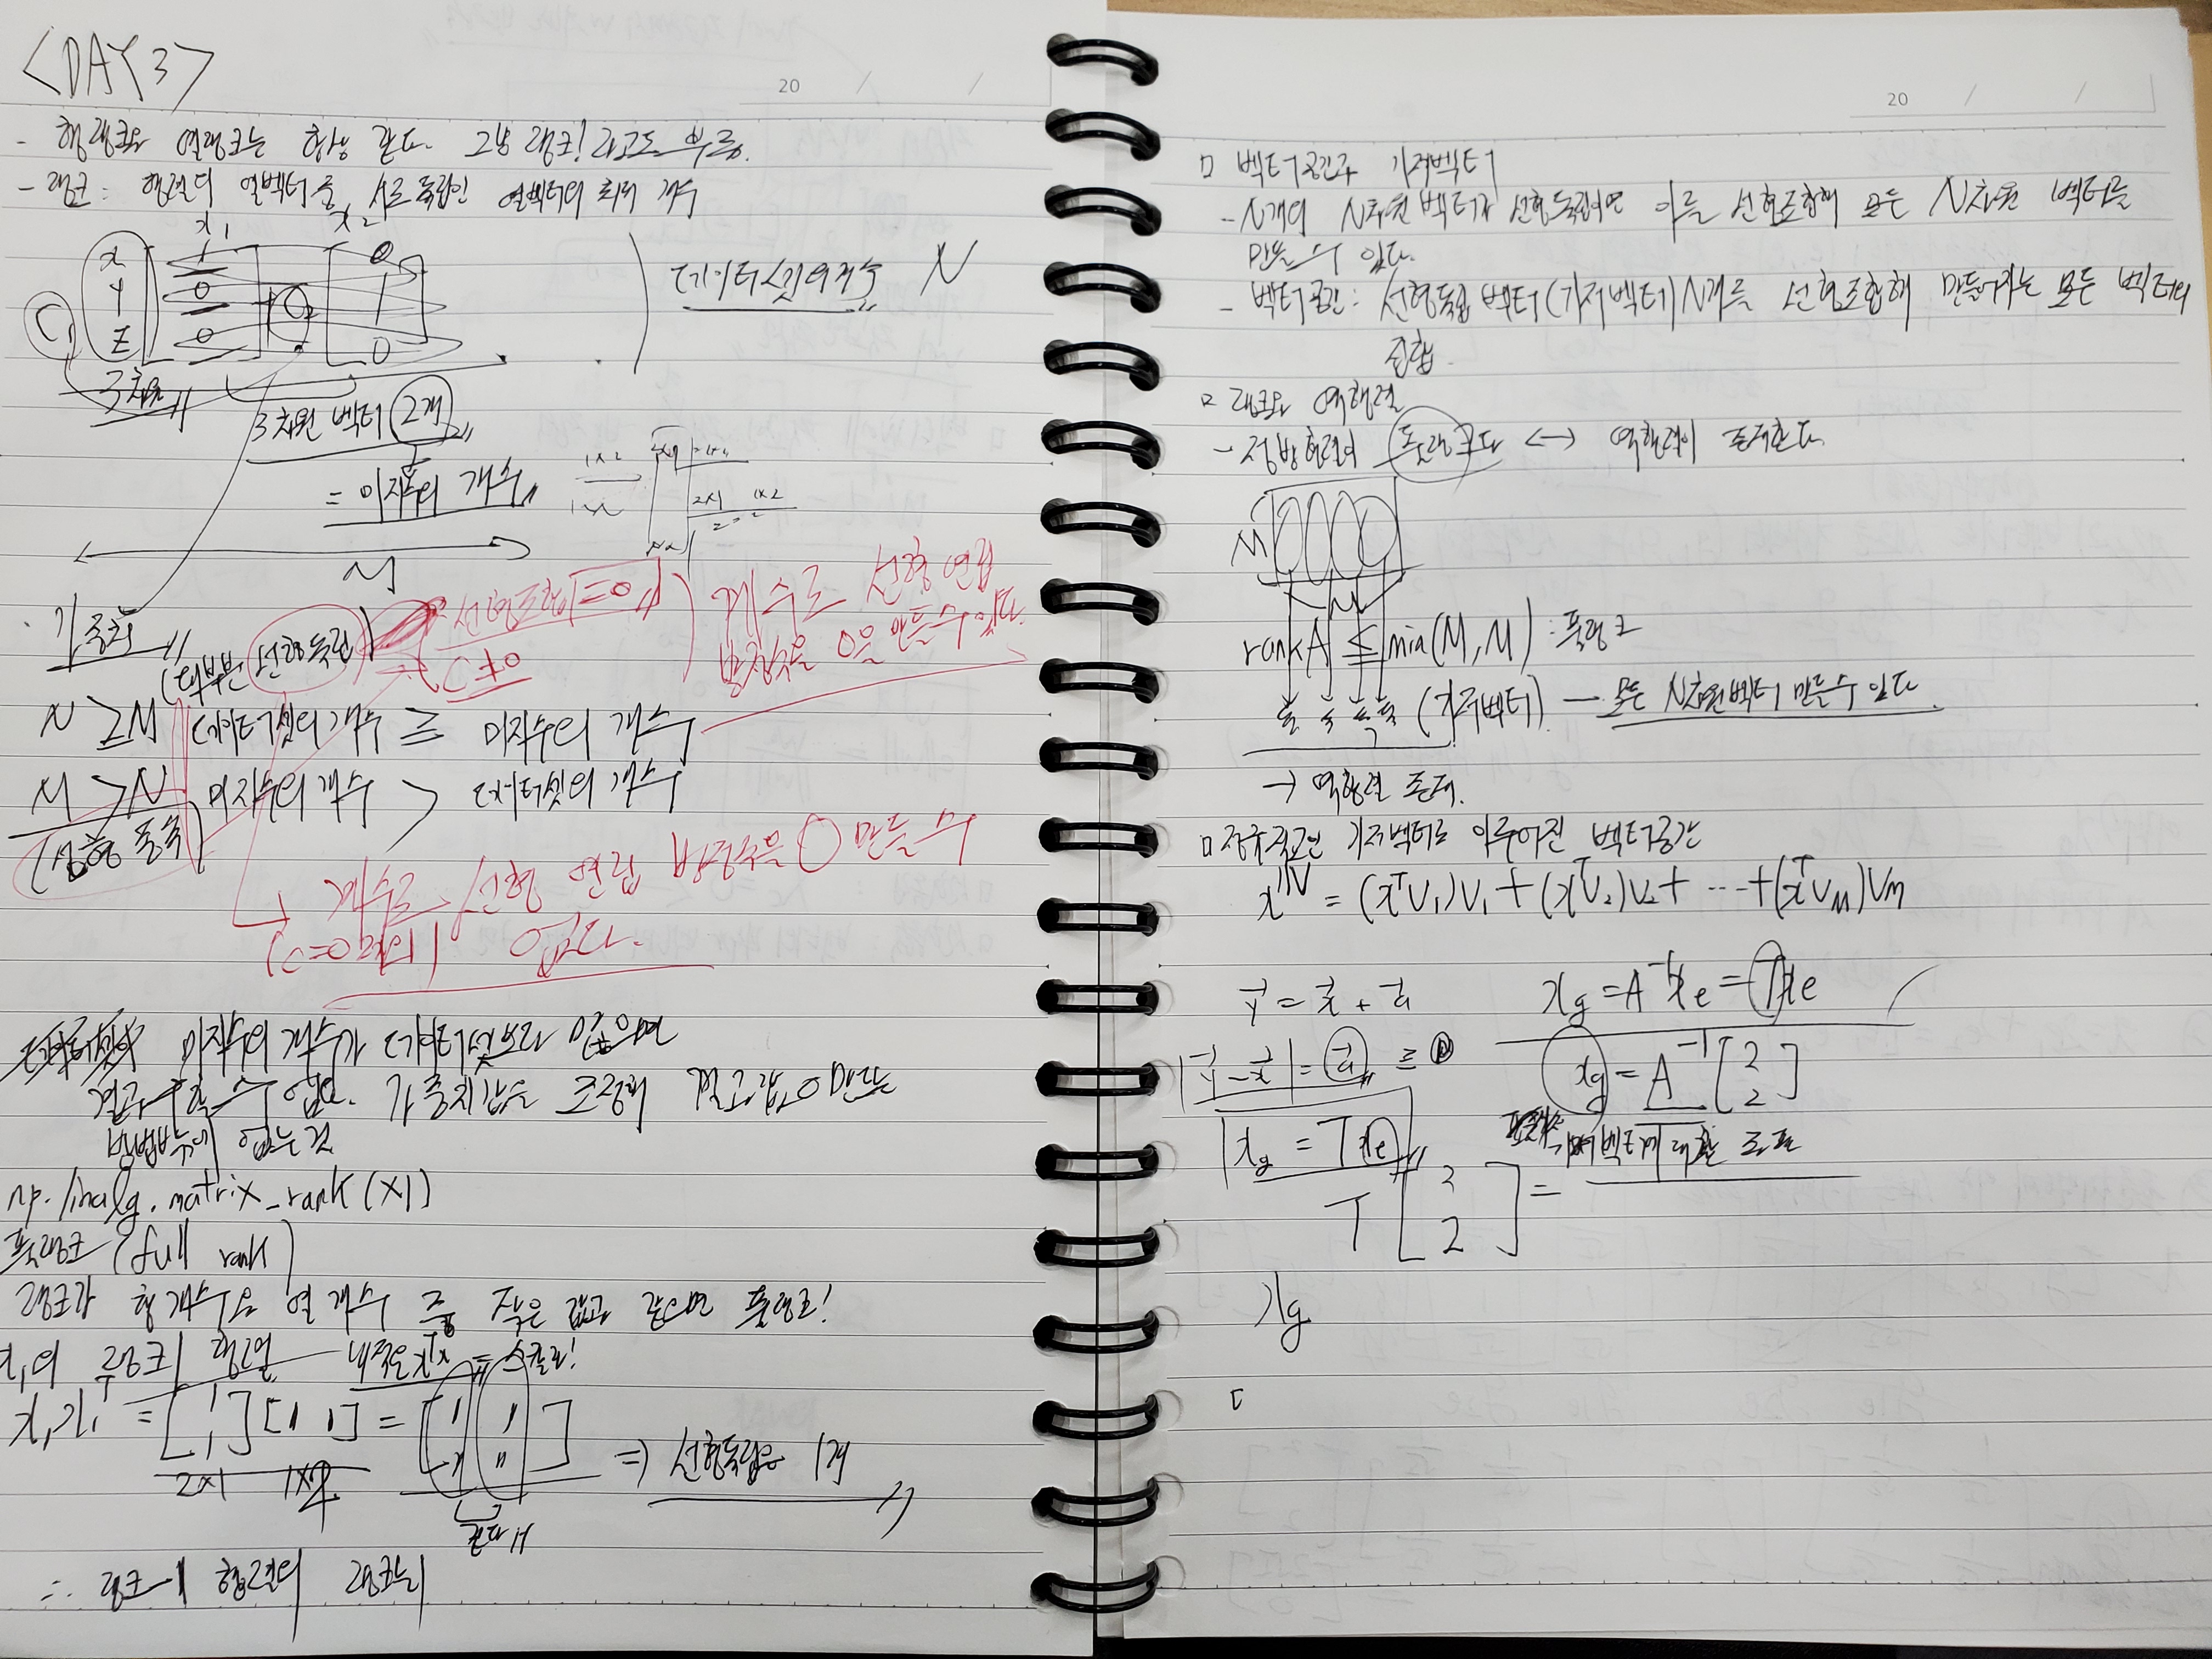 <DAY 3>
20 / /
- 행랭크와 열랭크는 항상 같다. 그냥 랭크! 라고도 부름.
- 랭크: 행렬의 열벡터 중 서로 독립인 열벡터의 최대 개수
x1 x2
C1 x 1 0
y 0 + 1
z 0 0
데이터셋의 개수 N
3차원
3차원 벡터 2개
= 미지수의 개수
1x2
2x1 1x2
M
가중치
(대부분 선형독립)
선형조합=0
C≠0
계수로 선형 연립
방정식을 0을 만들 수 있다.
N ≥ M 데이터셋의 개수 ≥ 미지수의 개수
M > N 미지수의 개수 > 데이터셋의 개수
(선형 종속)
계수로 선형 연립 방정식을 0 만들 수
(c=0 제외) 없다.
미지수의 개수가 데이터셋보다 많으면
결과 수 없다. 가중치값을 조정해 결과값 0 만드는
방법밖에 없는 것
np.linalg.matrix_rank(X1)
풀랭크 (full rank)
랭크가 행 개수와 열 개수 중 작은 값과 같으면 풀랭크!
x1의 랭크1 행렬 내적은 xTx = 스칼라!
x1x1T = [1 1] [1 1] = [1 1 1 1] ⇒ 선형독립은 1개
2x1 1x2
같다
∴ 랭크-1 행렬의 랭크는 1
20 / /
□ 벡터공간과 기저벡터
- N개의 N차원 벡터가 선형독립이면 이를 선형조합해 모든 N차원 벡터를
만들 수 있다.
- 벡터공간: 선형독립 벡터(기저벡터) N개를 선형조합해 만들어지는 모든 벡터의
집합.
□ 랭크와 역행렬
- 정방행렬이 풀랭크다 ↔ 역행렬이 존재한다
M
M
rankA ≤ min(M, M) : 풀랭크
독 독 독 독 (기저벡터) — 모든 N차원벡터 만들 수 있다.
→ 역행렬 존재.
□ 정규직교인 기저벡터로 이루어진 벡터공간
x^∥V = (xTv1)v1 + (xTv2)v2 + ··· + (xTvM)vM
y = x + a
|y - x| = a
xg = A^-1 xe = T xe
xg = A^-1 [2 2]
xg = T xe
기저벡터에 대한 좌표
T [2 2] =
xg
[